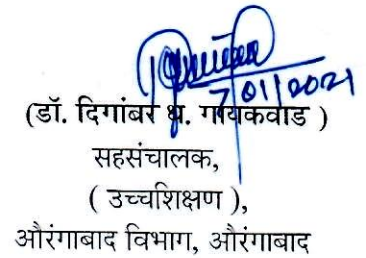 7/01/2021
(डॉ. दिगांबर ध. गायकवाड )
सहसंचालक,
( उच्चशिक्षण ),
औरंगाबाद विभाग, औरंगाबाद